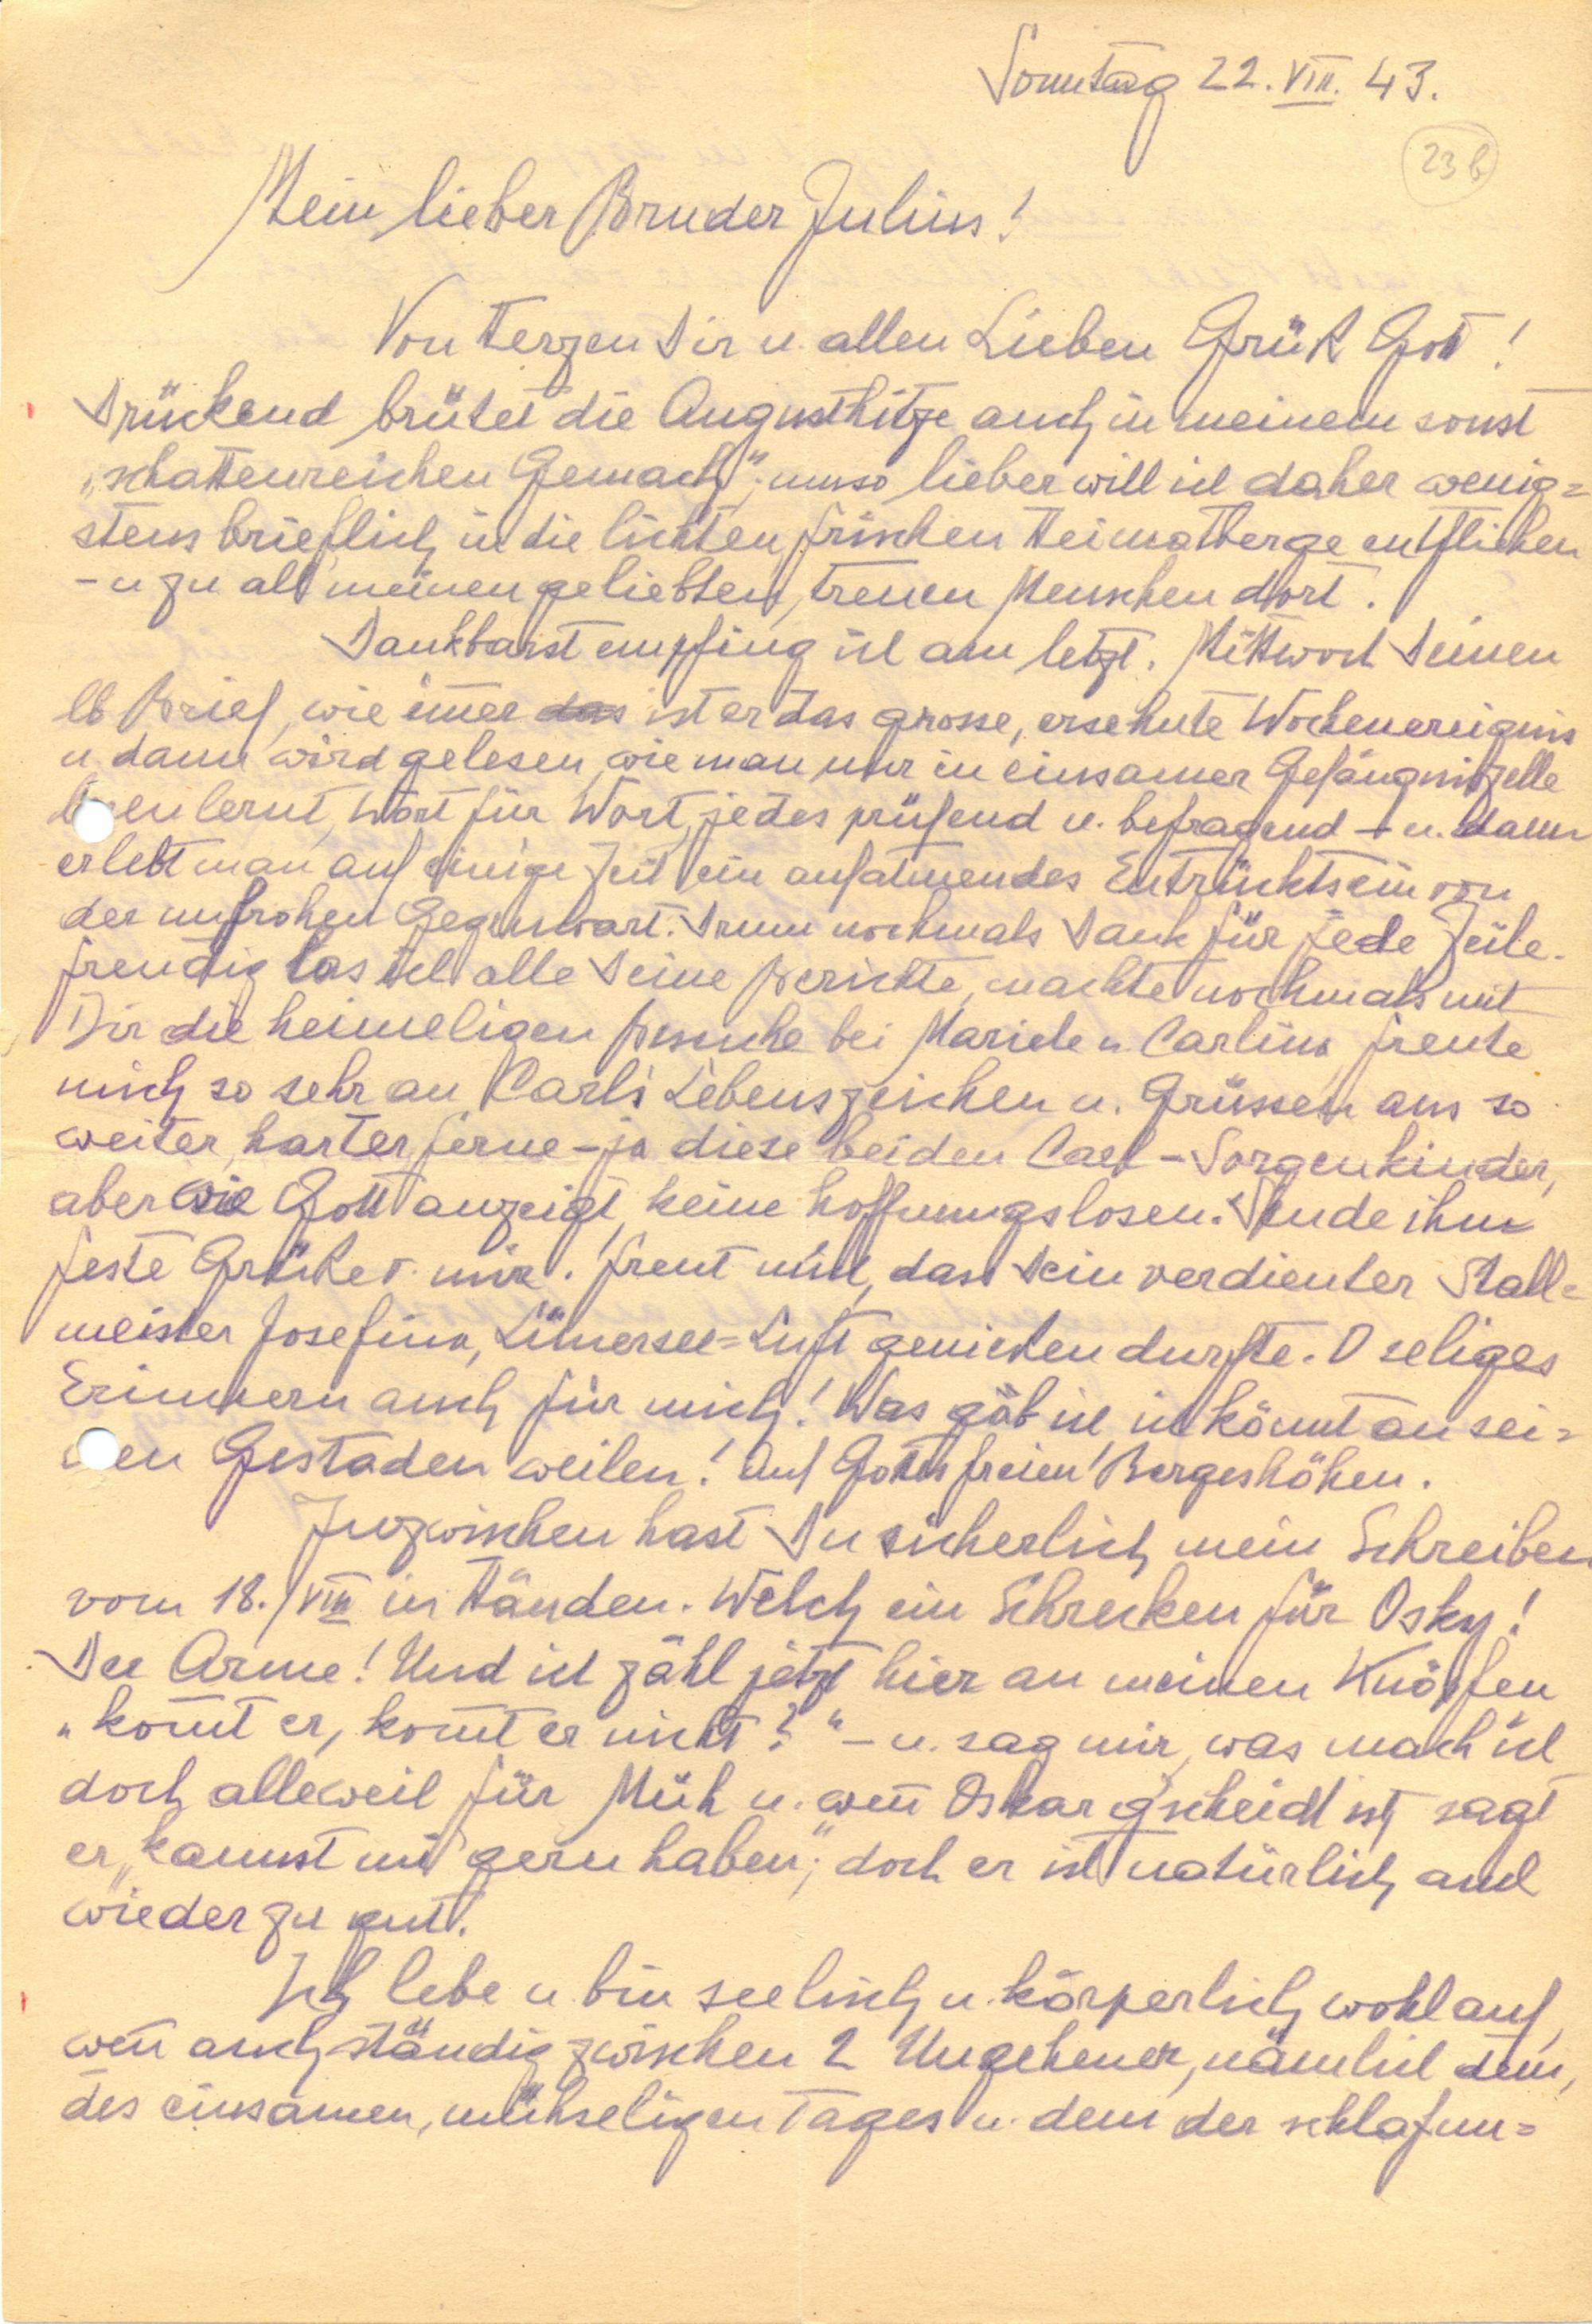 Sonntag 22. VIII. 43.
23 b
Mein lieber Bruder Julius!
Von Herzen Dir u. allen Lieben Grüß Gott!
Drückend brütet die Augusthitze auch in meinem sonst
„schattenreichen Gemach“; umso lieber will ich daher wenig=
stens brieflich in die lichten, frischen Heimatberge entfliehen
- u zu all meinen geliebten, treuen Menschen dort.
Dankbarst empfing ich am letzt. Mittwoch Deinen
lb Brief, wie im̄er das ist er das grosse, ersehnte Wochenereignis
u. dann wird gelesen, wie man nur in einsamer Gefängniszelle
lesen lernt, Wort für Wort, jedes prüfend u. befragend - u. dann
erlebt man auf einige Zeit ein aufatmendes Entrücktsein von
der unfrohen Gegenwart. Drum nochmals Dank für jede Zeile.
Freudig las ich alle Deine Berichte, machte nochmals mit
Dir die heimeligen Besuche bei Mariele u. Carlina, freute
mich so sehr an Carls Lebenszeichen u. Grüssen aus so
weiter, harter Ferne - ja diese beiden Carl - Sorgenkinder,
aber wie Gott anzeigt, keine hoffnungslosen. Sende ihm
feste Grüße v. mir. Freut mich, dass Dein verdienter Stall=
meister Josefina, Lünersee=Luft genießen durfte. O seliges
Erinnern auch für mich! Was gäb ich, ich könnt an sei=
nen Gestaden weilen! Auf Gottes freien Bergeshöhen.
Inzwischen hast Du sicherlich mein Schreiben
vom 18./VIII in Händen. Welch ein Schrecken für Osky!
Der Arme! Und ich zähl jetzt hier an meinen Knöpfen
„kom̄t er, kom̄t er nicht?“ - u. sag mir, was mach ich
doch alleweil für Müh u. wen̄ Oskar gscheidt ist, sagt
er „kannst mi gern haben“; doch er ist natürlich auch
wieder zu gut.
Ich lebe u. bin seelisch u. körperlich wohlauf,
wen̄ auch ständig zwischen 2 Ungeheuer, nämlich dem,
des einsamen, mühseligen Tages u. dem der schlafum=